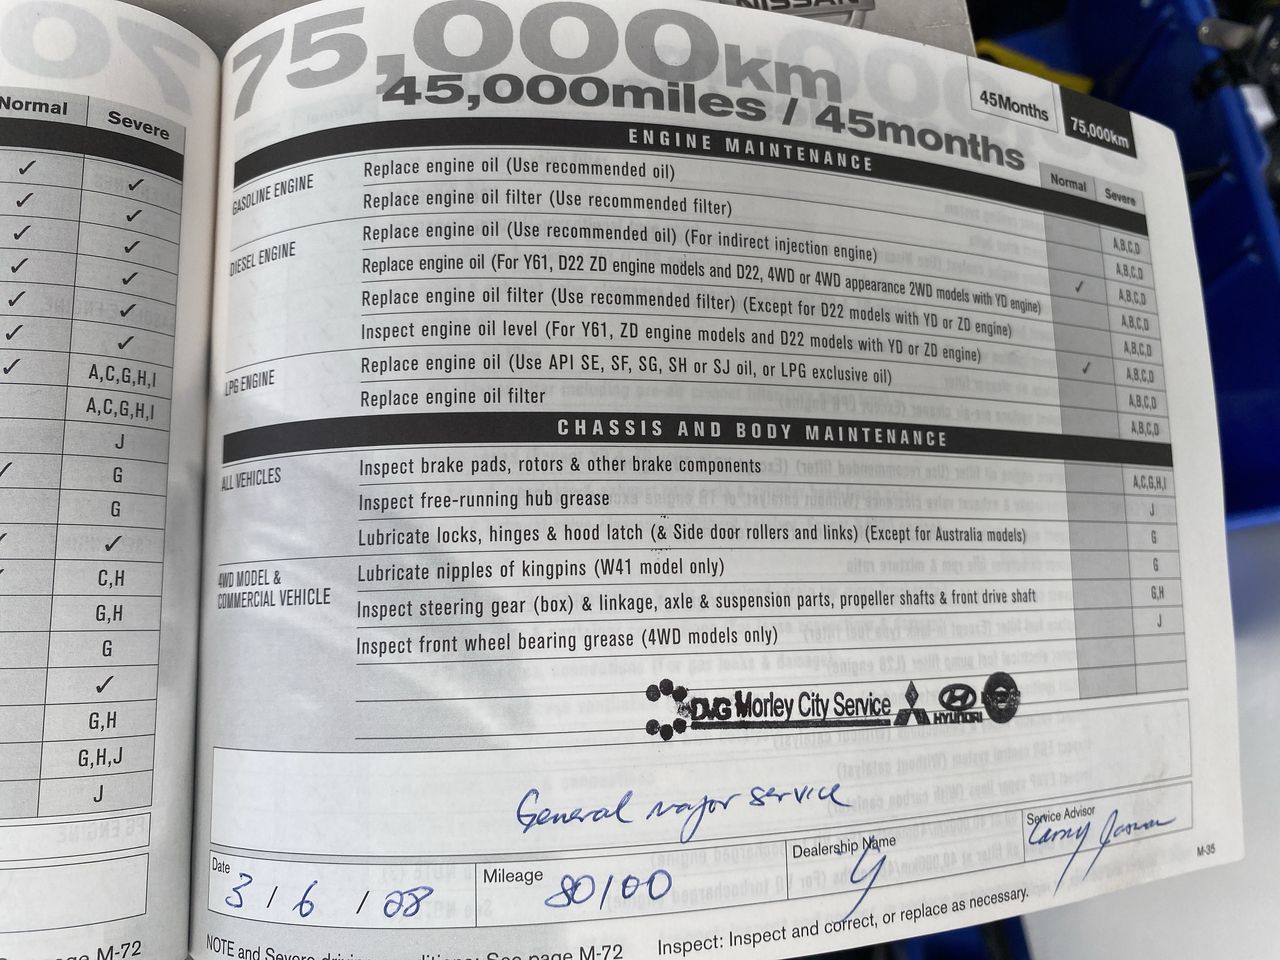 NISSAN
Normal Severe
✓ ✓
✓ ✓
✓ ✓
✓ ✓
✓ ✓
✓ ✓
✓ A,C,G,H,I
A,C,G,H,I
J
✓ G
G
✓ ✓
C,H
G,H
G
✓
G,H
G,H,J
J
M-72
75,000km
45,000miles / 45months
45Months
75,000km
ENGINE MAINTENANCE
Normal Severe
GASOLINE ENGINE Replace engine oil (Use recommended oil) A,B,C,D
Replace engine oil filter (Use recommended filter) A,B,C,D
DIESEL ENGINE Replace engine oil (Use recommended oil) (For indirect injection engine) ✓ A,B,C,D
Replace engine oil (For Y61, D22 ZD engine models and D22, 4WD or 4WD appearance 2WD models with YD engine) A,B,C,D
Replace engine oil filter (Use recommended filter) (Except for D22 models with YD or ZD engine) A,B,C,D
Inspect engine oil level (For Y61, ZD engine models and D22 models with YD or ZD engine) ✓ A,B,C,D
LPG ENGINE Replace engine oil (Use API SE, SF, SG, SH or SJ oil, or LPG exclusive oil) A,B,C,D
Replace engine oil filter A,B,C,D
CHASSIS AND BODY MAINTENANCE
ALL VEHICLES Inspect brake pads, rotors & other brake components A,C,G,H,I
Inspect free-running hub grease J
Lubricate locks, hinges & hood latch (& Side door rollers and links) (Except for Australia models) G
4WD MODEL & COMMERCIAL VEHICLE Lubricate nipples of kingpins (W41 model only) G
Inspect steering gear (box) & linkage, axle & suspension parts, propeller shafts & front drive shaft G,H
Inspect front wheel bearing grease (4WD models only) J
DVG Morley City Service HYUNDAI
General major service
Date 3 / 6 / 08 Mileage 80100 Dealership Name Service Advisor
M-35
NOTE and Severe driving conditions: See page M-72 Inspect: Inspect and correct, or replace as necessary.